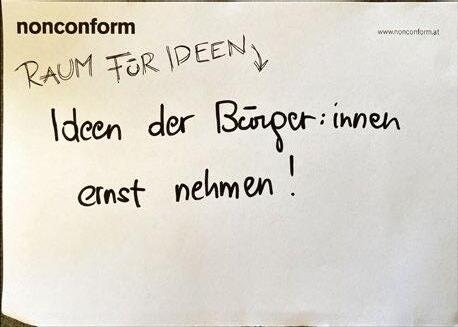 nonconform
www.nonconform.at
RAUM FÜR IDEEN
Ideen der Bürger:innen
ernst nehmen!